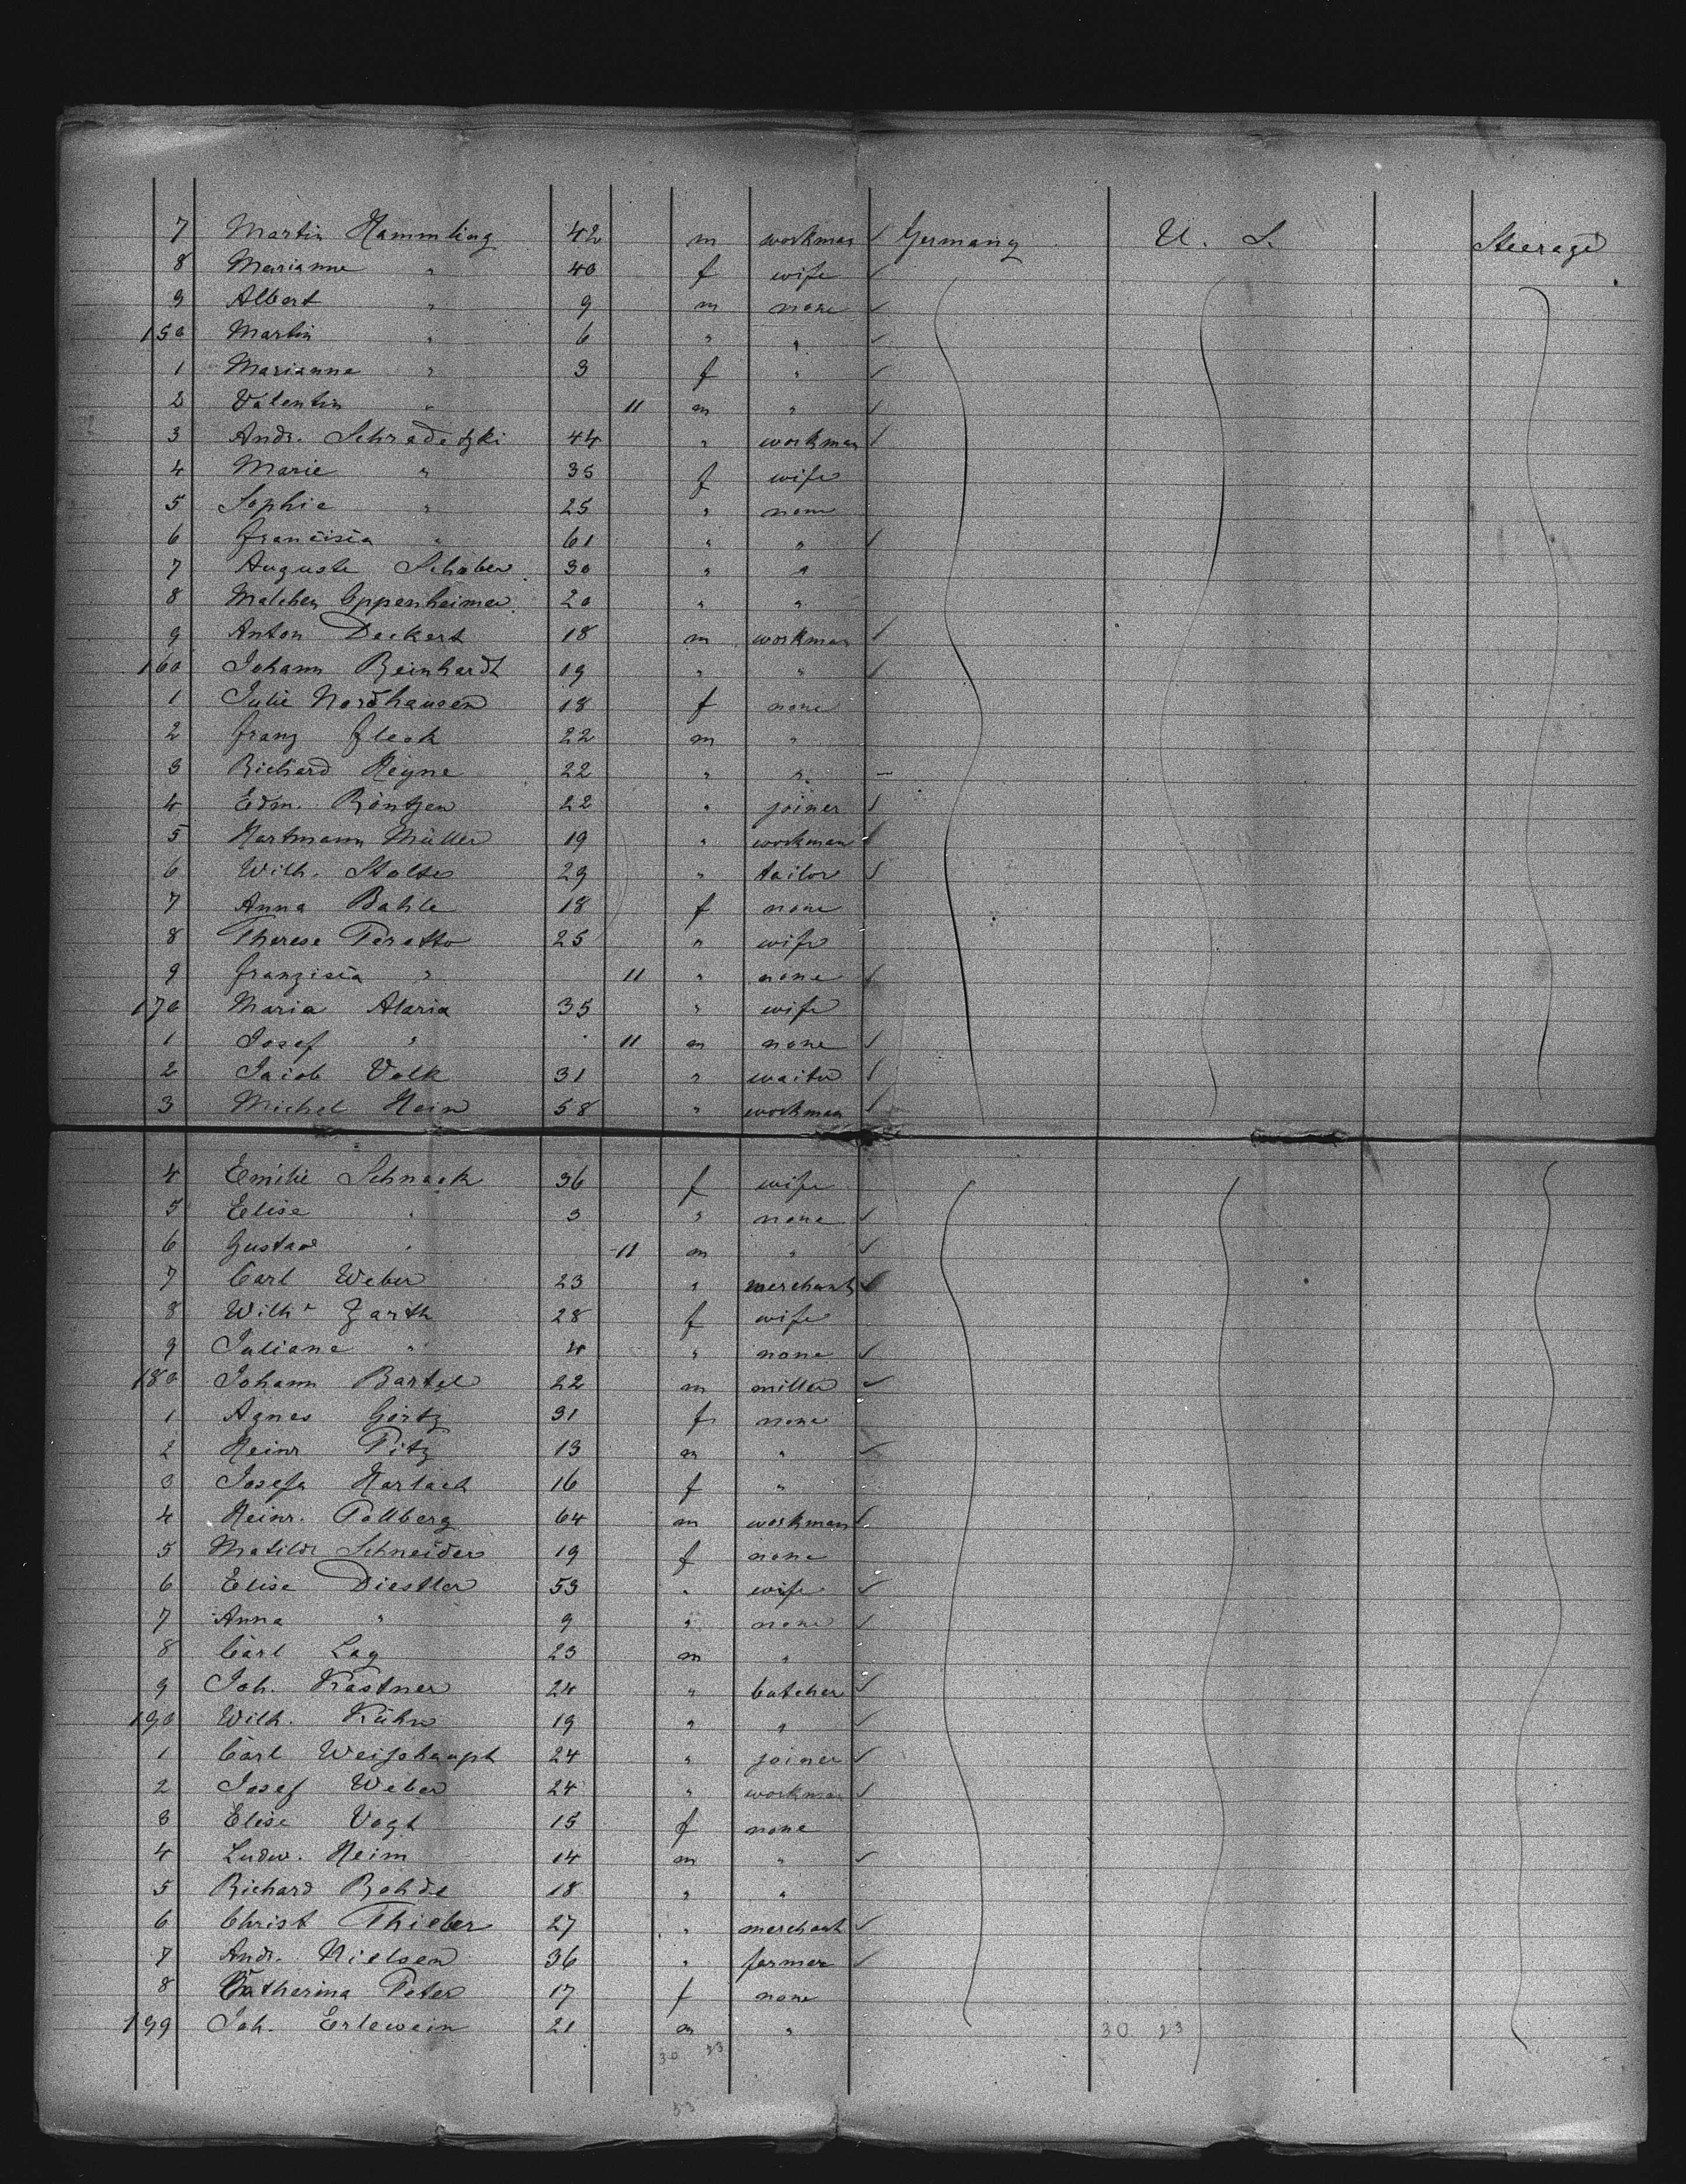 7 Martin Hammling 42 m workman ✓ Germany U. S. Steerage
8 Marianne " 40 f wife ✓
9 Albert " 9 m none ✓
150 Martin " 6 " " ✓
1 Marianne " 3 f " ✓
2 Valentin " 11 m " ✓
3 Andr. Schradetzki 44 " workman ✓
4 Marie " 35 f wife
5 Sophie " 25 " none
6 Francisca " 61 " " ✓
7 Auguste Schaber 30 " "
8 Malchen Oppenheimer 20 " "
9 Anton Deckert 18 m workman ✓
160 Johann Reinhardt 19 " " ✓
1 Julie Nordhausen 18 f none
2 Franz Fleck 22 m "
3 Richard Heyne 22 " " –
4 Edm. Röntgen 22 " joiner ✓
5 Hartmann Müller 19 " workman ✓
6 Wilh. Stolte 29 " tailor ✓
7 Anna Bahle 18 f none
8 Therese Peretto 25 " wife
9 Franzisca " 11 " none ✓
170 Maria Alaria 35 " wife
1 Josef " 11 m none ✓
2 Jacob Volk 31 " waiter ✓
3 Michel Hein 58 " workman ✓
4 Emilie Schnack 36 f wife
5 Elise " 3 " none ✓
6 Gustav " 11 m " ✓
7 Carl Weber 23 " merchant ✓
8 Wilhe Zarth 28 f wife
9 Juliane " 4 " none ✓
180 Johann Bartzel 22 m miller ✓
1 Agnes Görtz 31 f none
2 Heinr Pitz 13 m " ✓
3 Josefa Harlach 16 f "
4 Heinr. Pollberg 64 m workman ✓
5 Matilde Schneider 19 f none
6 Elise Diestler 53 " wife ✓
7 Anna " 9 " none ✓
8 Carl Lag 23 m "
9 Joh. Kastner 24 " butcher ✓
190 Wilh. Kühn 19 " " ✓
1 Carl Weishaupt 24 " joiner ✓
2 Josef Weber 24 " workman ✓
3 Elise Vogt 15 f none
4 Ludw. Heim 14 m " ✓
5 Richard Rohde 18 " "
6 Christ Thieber 27 " merchant ✓
7 Andr. Nielsen 36 " farmer ✓
8 Catherina Peter 17 f none
199 Joh. Erlewein 21 m " 30 23
30 23
53